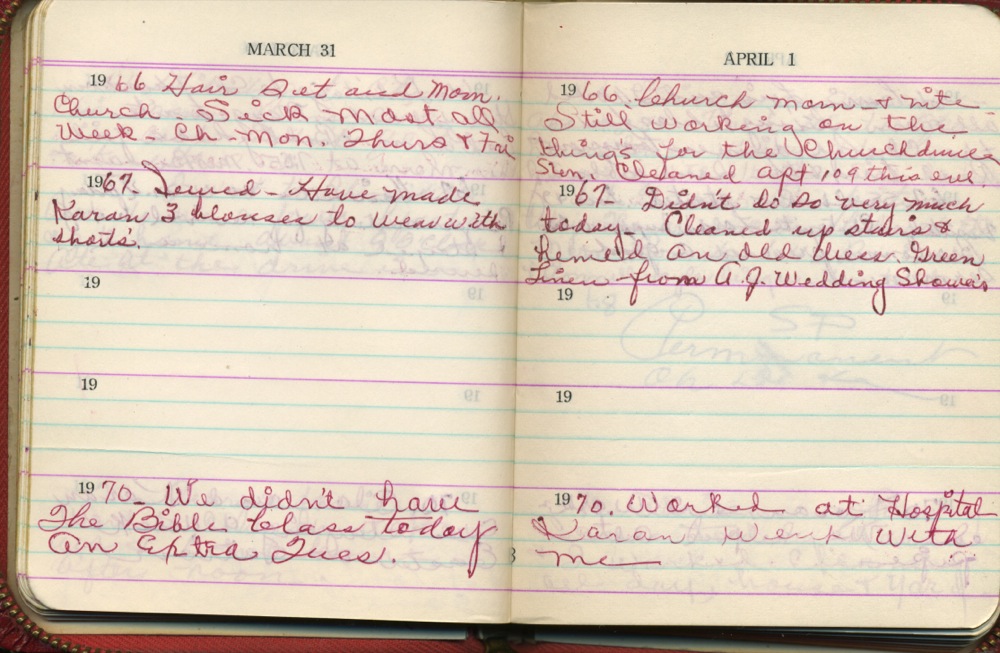 MARCH 31
1966 Hair Set and Mom.
Church - Sick - most all
Week - Ch - Mon. Thurs & Fri
1967. Sewed - Have made
Karan 3 blouses to wear with
shorts.
19
19
1970 - We didn't have
The Bible Class today
An Extra Tues.
APRIL 1
1966. Church morn & nite
Still working on the
things for the Church
Sun. Cleaned apt 109 this eve.
1967 - Didn't do so very much
today - Cleaned up stairs &
hemed an old dress. Green
Linen from A.J. Wedding
19
19
1970. Worked at Hospital
Karan Went With
me